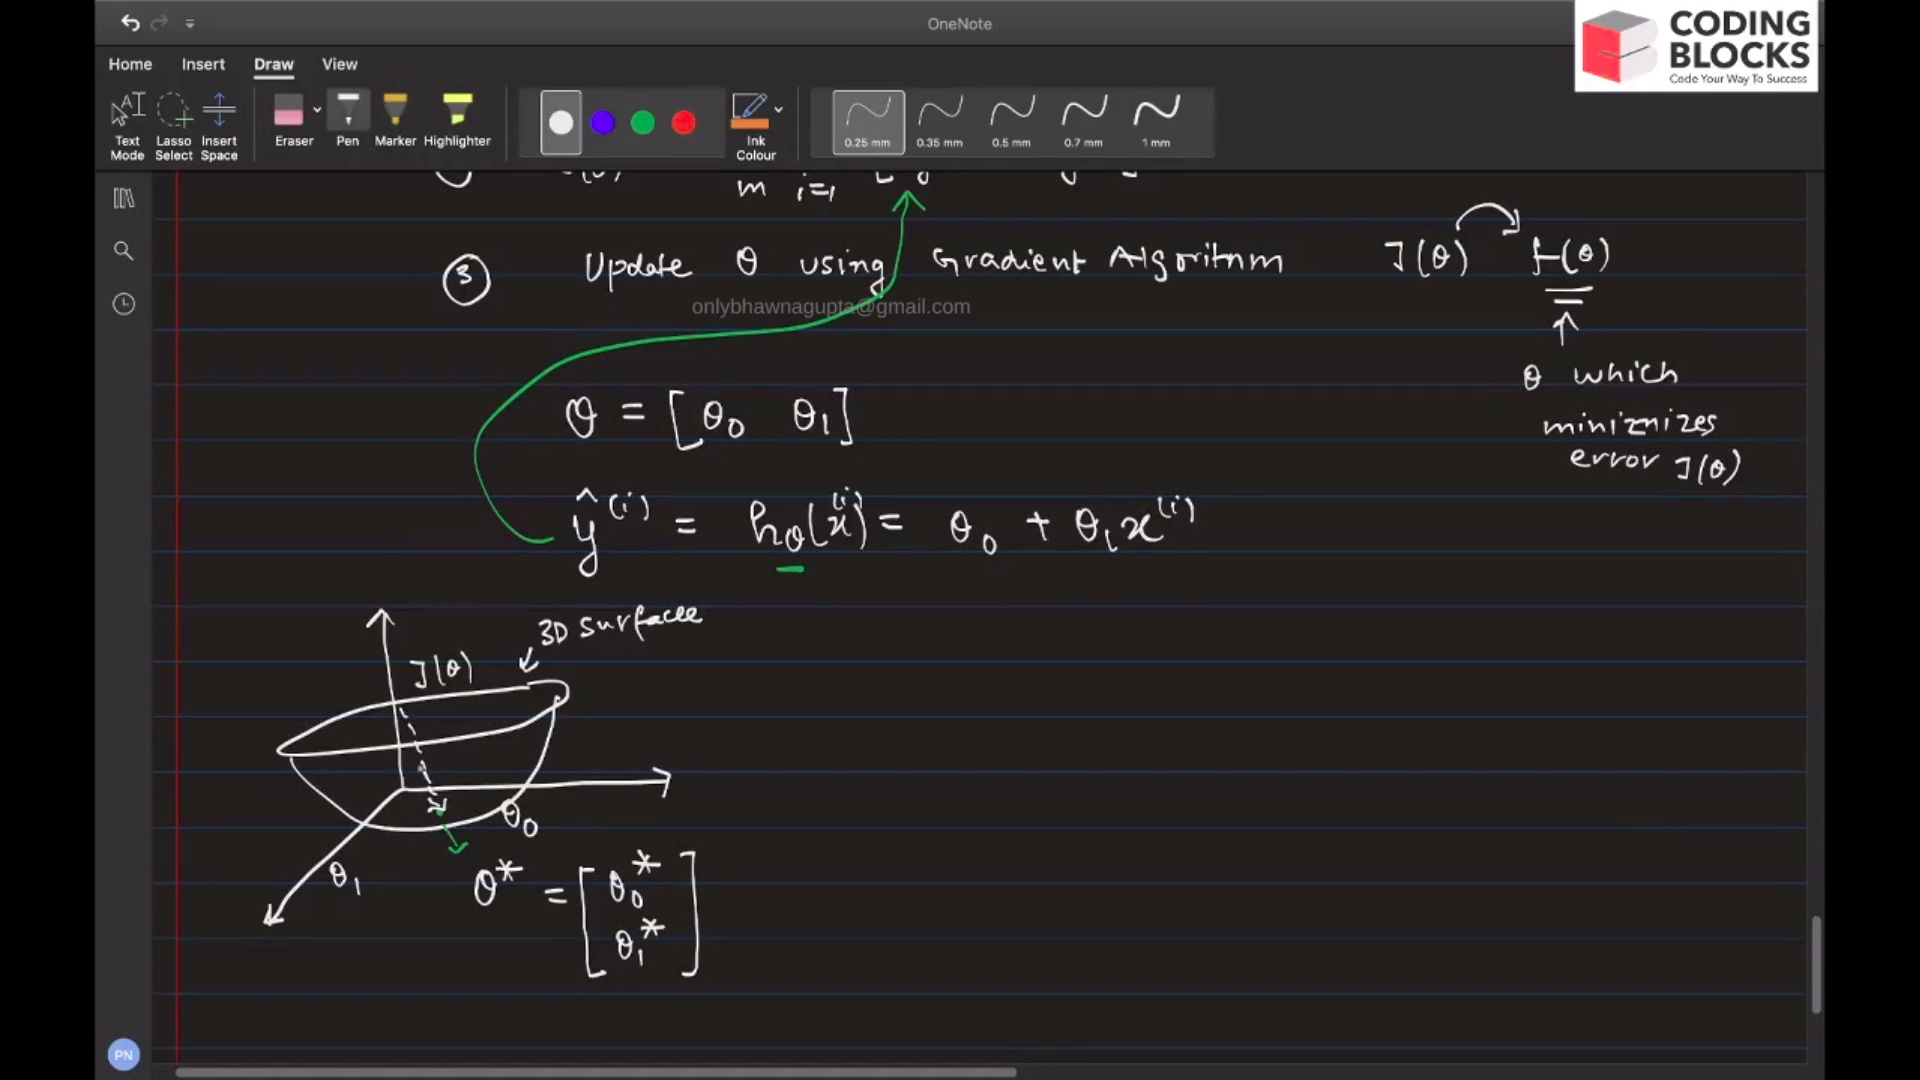 OneNote
CODING
BLOCKS
Code Your Way To Success
Home Insert Draw View
Text Mode
Lasso Select
Insert Space
Eraser
Pen
Marker
Highlighter
Ink Colour
0.25 mm
0.35 mm
0.5 mm
0.7 mm
1 mm
m i=1
③ Update θ using Gradient Algoritnm J(θ) f(θ)
onlybhawnagupta@gmail.com
θ which
minimizes
error J(θ)
θ = [θ₀ θ₁]
ŷ⁽ⁱ⁾ = h_θ(x⁽ⁱ⁾) = θ₀ + θ₁x⁽ⁱ⁾
3D surface
J(θ)
θ₀
θ₁
θ* = [θ₀*
θ₁*]
PN